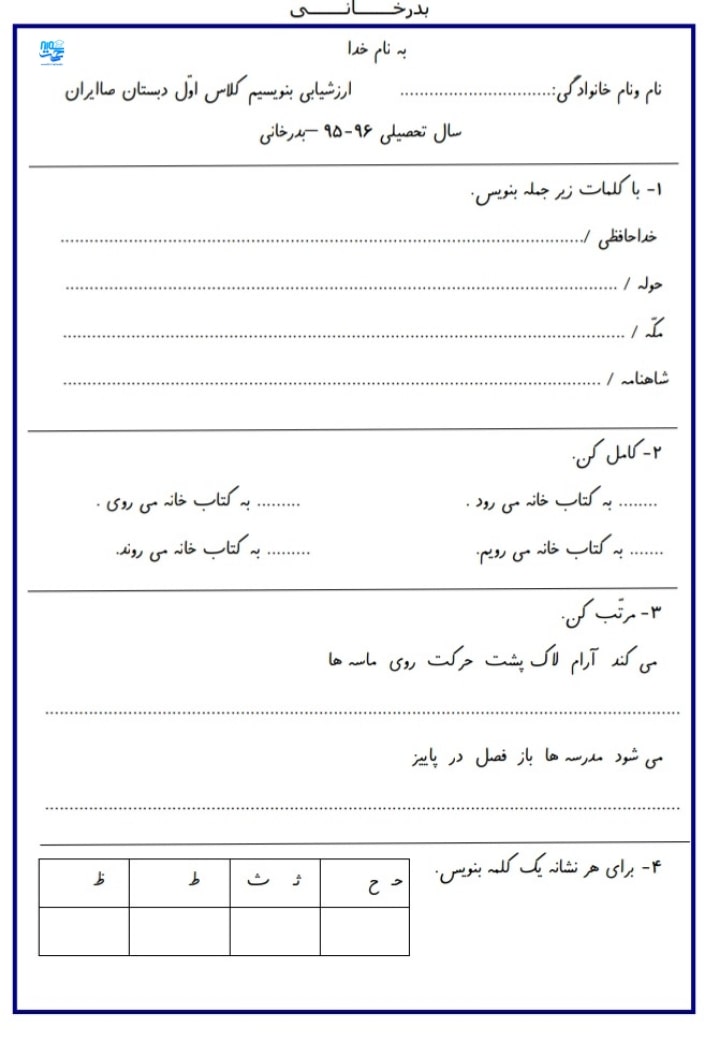 بدرخــــــانــــــی
به نام خدا
نام ونام خانوادگی:................................ ارزشیابی بنویسیم کلاس اوّل دبستان صاایران
سال تحصیلی ۹۶-۹۵ –بدرخانی
۱- با کلمات زیر جمله بنویس.
خداحافظی /............................................................
حوله / ............................................................
مکّه / ............................................................
شاهنامه / ............................................................
۲- کامل کن.
........ به کتاب خانه می رود . ......... به کتاب خانه می روی .
....... به کتاب خانه می رویم. ......... به کتاب خانه می روند.
۳- مرتّب کن.
می کند آرام لاک پشت حرکت روی ماسه ها
............................................................
می شود مدرسه ها باز فصل در پاییز
............................................................
۴- برای هر نشانه یک کلمه بنویس.
حـ ح ثـ ث ط ظ